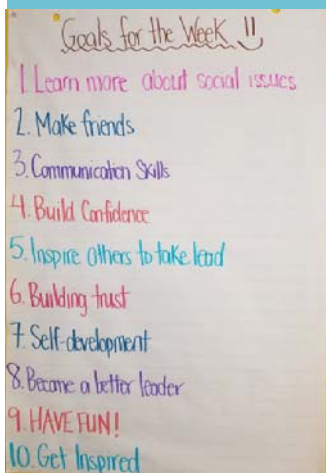 Goals for the Week !!
1. Learn more about social issues
2. Make friends
3. Communication Skills
4. Build Confidence
5. Inspire others to take lead
6. Building trust
7. Self-development
8. Become a better leader
9. HAVE FUN!
10. Get Inspired